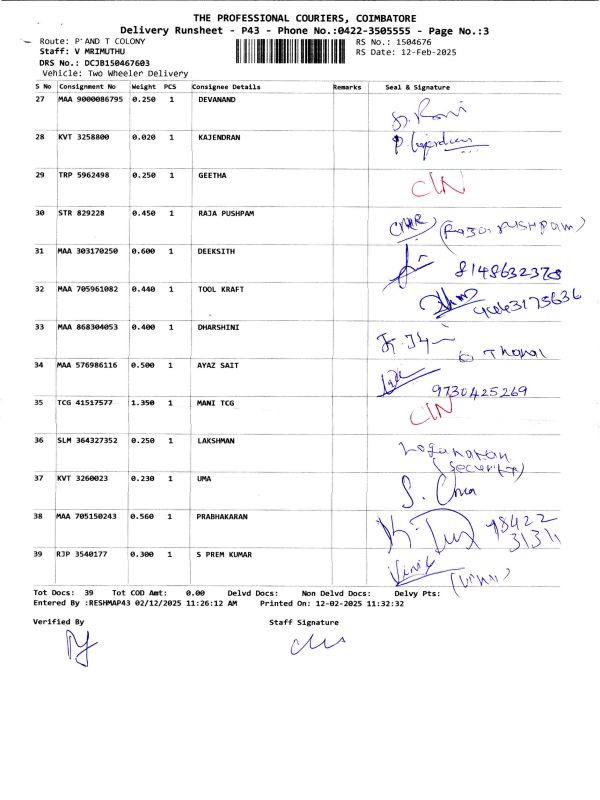 THE PROFESSIONAL COURIERS, COIMBATORE
Delivery Runsheet - P43 - Phone No.:0422-3505555 - Page No.:3
Route: P AND T COLONY RS No.: 1504676
Staff: V MRIMUTHU RS Date: 12-Feb-2025
DRS No.: DCJB150467603
Vehicle: Two Wheeler Delivery
S No Consignment No Weight PCS Consignee Details Remarks Seal & Signature
27 MAA 9000086795 0.250 1 DEVANAND
28 KVT 3258800 0.020 1 KAJENDRAN
29 TRP 5962498 0.250 1 GEETHA CIN
30 STR 829228 0.450 1 RAJA PUSHPAM
31 MAA 303170250 0.600 1 DEEKSITH 8148632378
32 MAA 705961082 0.440 1 TOOL KRAFT
33 MAA 868304053 0.400 1 DHARSHINI
34 MAA 576986116 0.500 1 AYAZ SAIT 9730425269
35 TCG 41517577 1.350 1 MANI TCG CIN
36 SLM 364327352 0.250 1 LAKSHMAN
37 KVT 3260023 0.230 1 UMA
38 MAA 705150243 0.560 1 PRABHAKARAN
39 RJP 3540177 0.300 1 S PREM KUMAR
Tot Docs: 39 Tot COD Amt: 0.00 Delvd Docs: Non Delvd Docs: Delvy Pts:
Entered By :RESHMAP43 02/12/2025 11:26:12 AM Printed On: 12-02-2025 11:32:32
Verified By Staff Signature